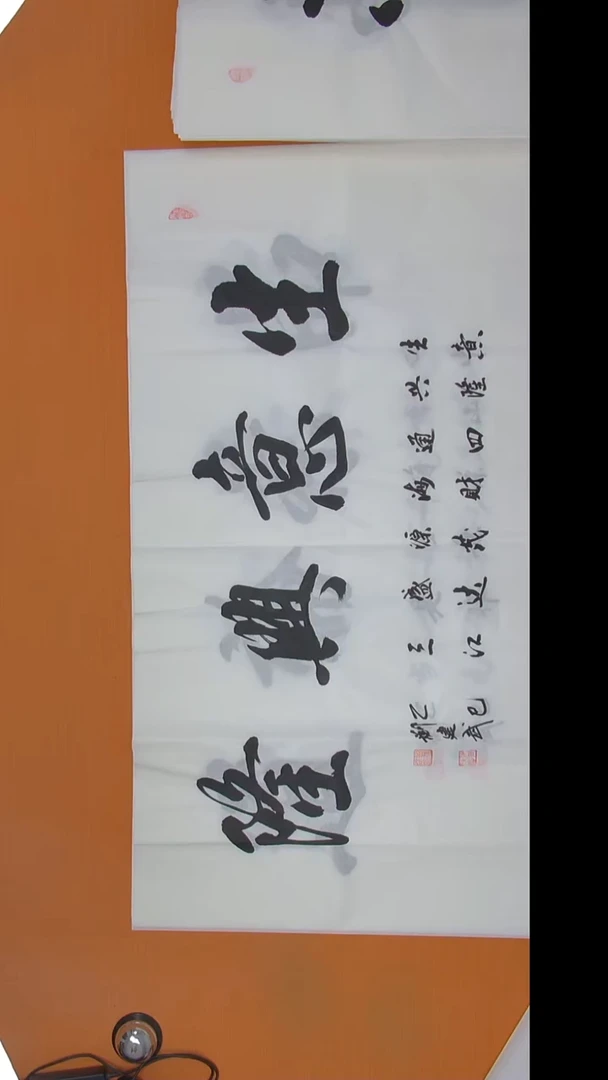 生意興隆
生意
兴隆
通四
海財
源茂
盛达
三江
乙巳
建武